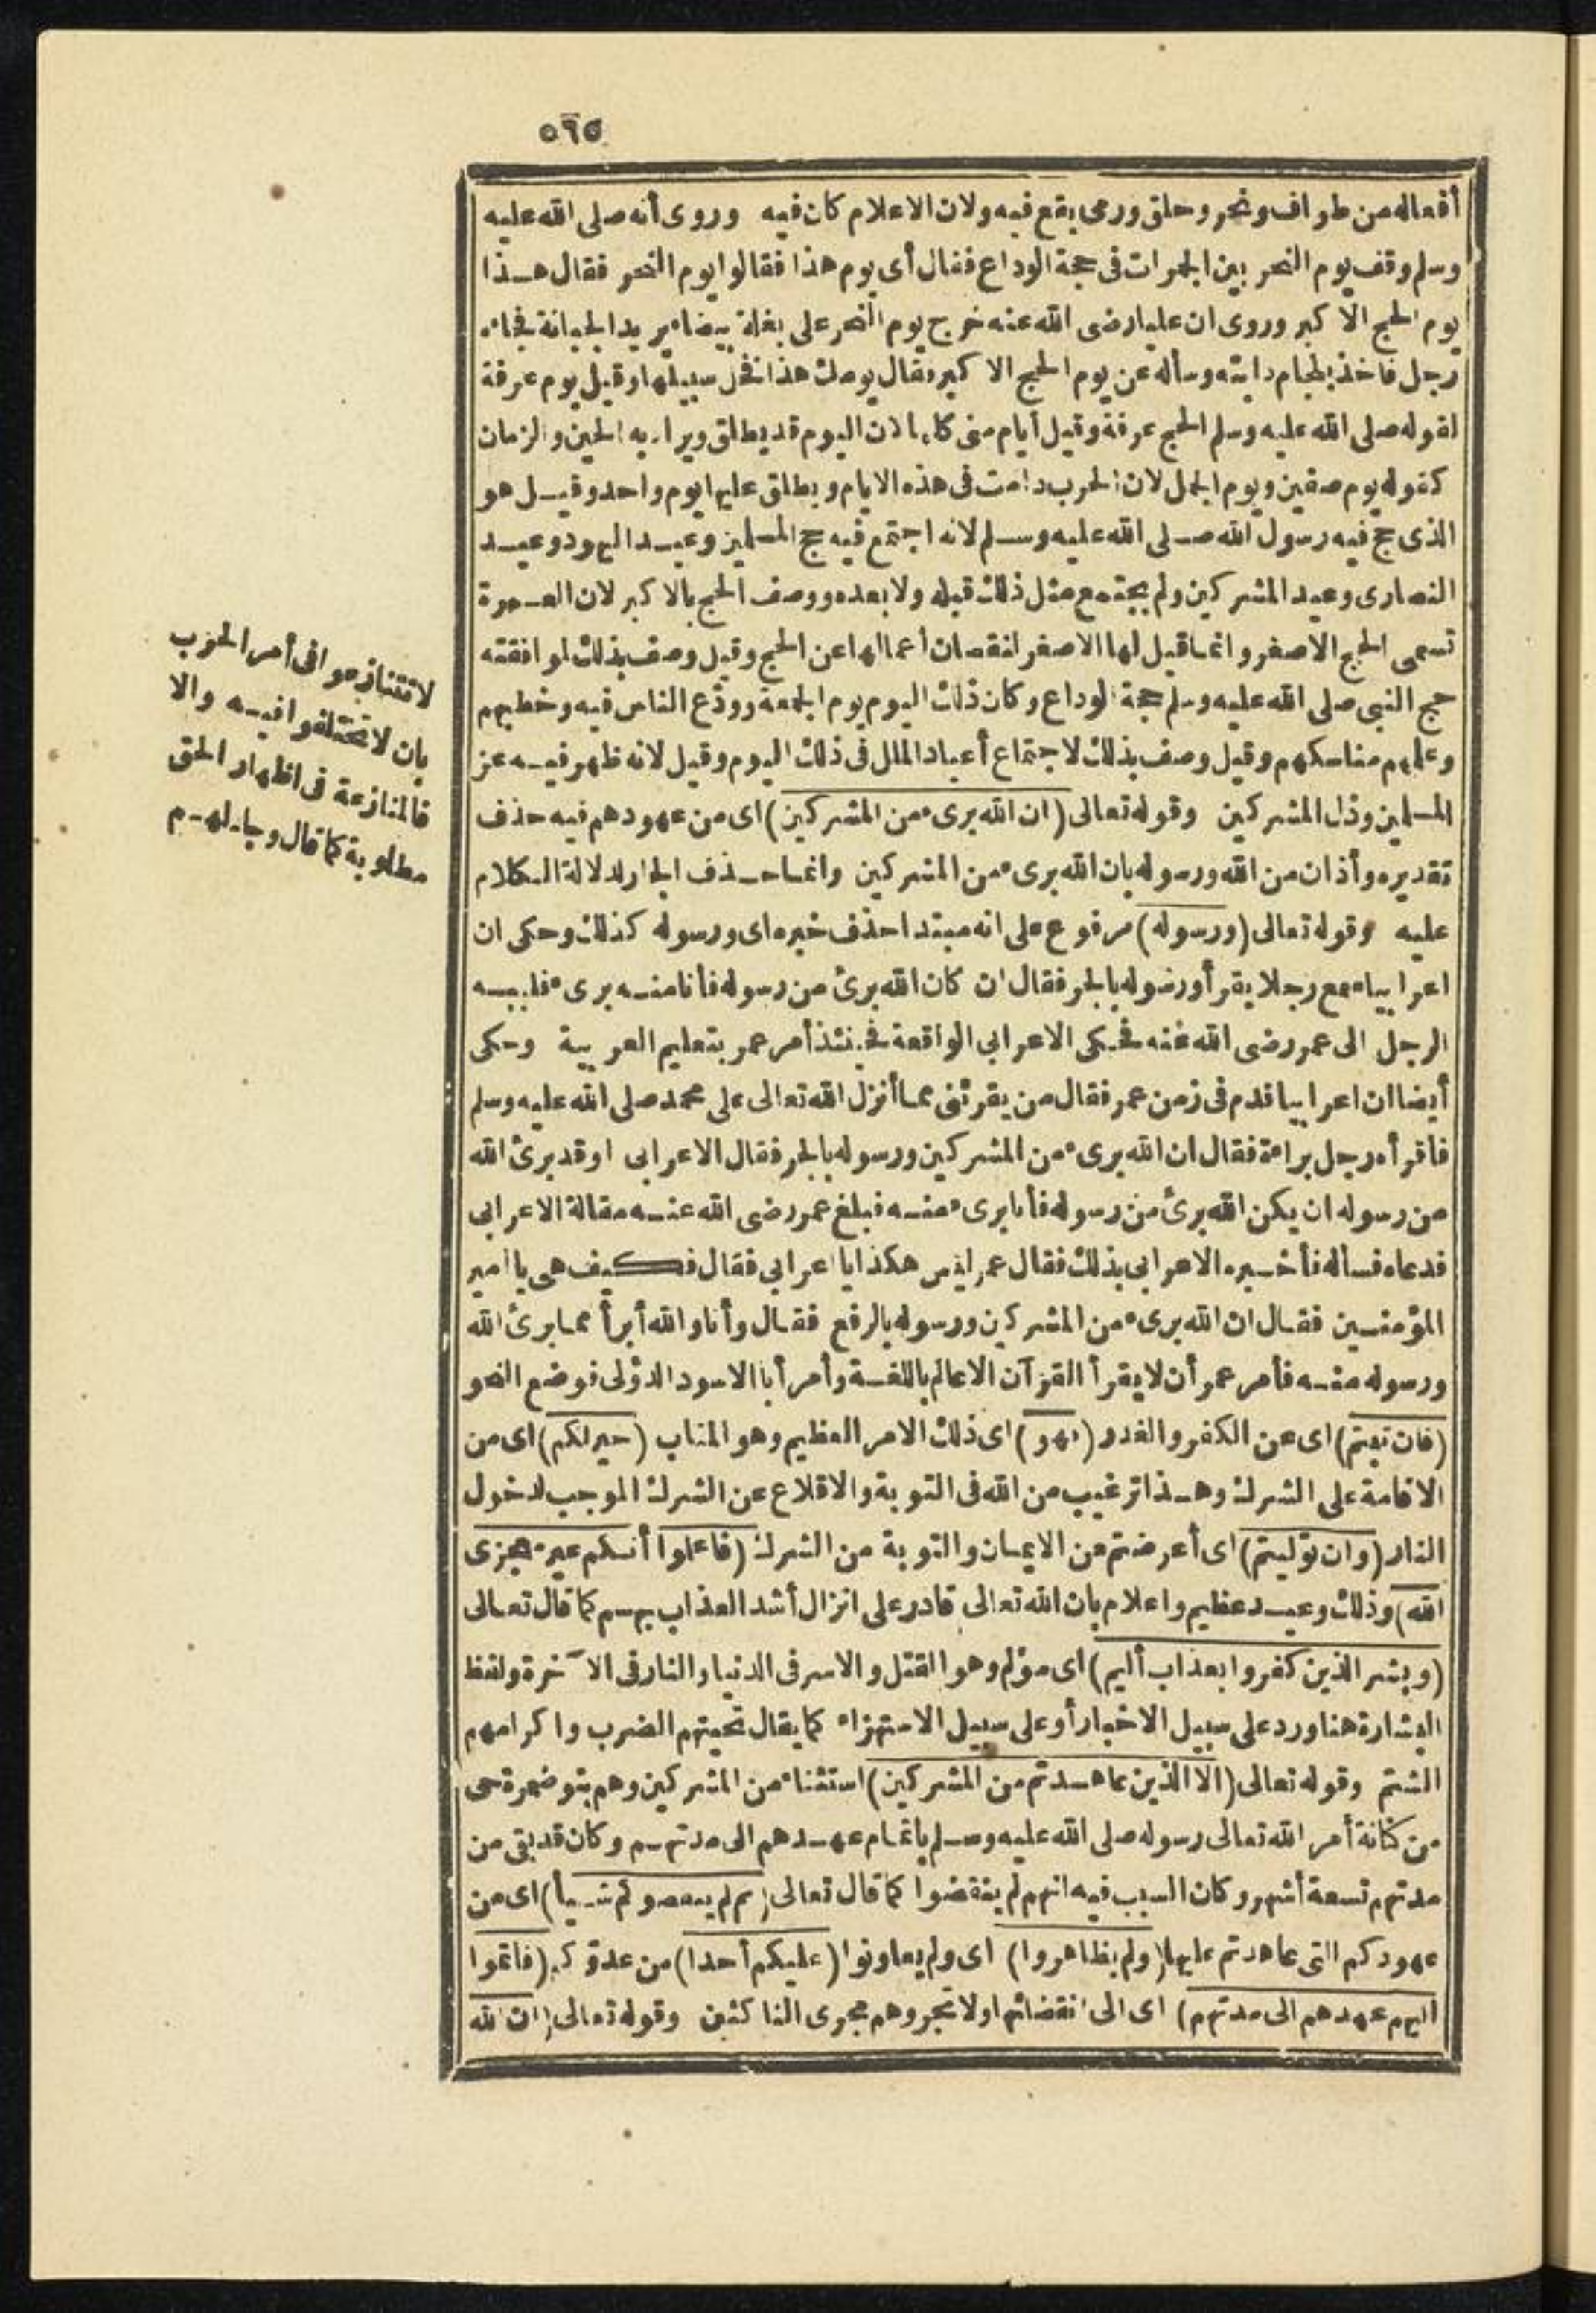 ٥٦٥
أفعاله من طواف ونحر وحلق ورمى يقع فيه ولان الاعلام كان فيه وروى أنه صلى الله عليه
وسلم وقف يوم النحر بين الجمرات فى حجة الوداع فقال أى يوم هذا فقالوا يوم النحر فقال هذا
يوم الحج الاكبر وروى ان عليا رضى الله عنه خرج يوم النحر على بغلة بيضاء يريد الجبانة فجاءه
رجل فاخذ بلجام دابته وسأله عن يوم الحج الاكبر فقال يومك هذا فخل سبيلها وقيل يوم عرفة
لقوله صلى الله عليه وسلم الحج عرفة وقيل أيام منى كلها لان اليوم قد يطلق ويراد به الحين والزمان
كقوله يوم صفين ويوم الجمل لان الحرب دامت فى هذه الايام ويطلق عليها يوم واحد وقيل هو
الذى حج فيه رسول الله صلى الله عليه وسلم لانه اجتمع فيه حج المسلمين وعيد اليهود وعيد
النصارى وعيد المشركين ولم يجتمع مثل ذلك قبله ولا بعده ووصف الحج بالاكبر لان العمرة
تسمى الحج الاصغر وانما قيل لها الاصغر لنقصان أعمالها عن الحج وقيل وصف بذلك لموافقته
حج النبى صلى الله عليه وسلم حجة الوداع وكان ذلك اليوم يوم الجمعة وودّع الناس فيه وخطبهم
وعلمهم مناسكهم وقيل وصف بذلك لاجتماع أعياد الملل فى ذلك اليوم وقيل لانه ظهر فيه عز
المسلمين وذل المشركين وقوله تعالى (ان الله برىء من المشركين) اى من عهودهم فيه حذف
تقديره وأذان من الله ورسوله بان الله برىء من المشركين وانما حذف الجار لدلالة الكلام
عليه وقوله تعالى (ورسوله) مرفوع على انه مبتدا حذف خبره اى ورسوله كذلك وحكى ان
اعرابيا سمع رجلا يقرأ ورسوله بالجر فقال ان كان الله برئ من رسوله فأنا منه برىء فلببه
الرجل الى عمر رضى الله عنه فحكى الاعرابى الواقعة فحينئذ أمر عمر بتعليم العربية وحكى
أيضا ان اعرابيا قدم فى زمن عمر فقال من يقرئنى مما أنزل الله تعالى على محمد صلى الله عليه وسلم
فاقرأه رجل براءة فقال ان الله برىء من المشركين ورسوله بالجر فقال الاعرابى اوقد برئ الله
من رسوله ان يكن الله برئ من رسوله فأنا برىء منه فبلغ عمر رضى الله عنه مقالة الاعرابى
فدعاه فسأله فأخبره الاعرابى بذلك فقال عمر ليس هكذا يا اعرابى فقال فكيف هى يا امير
المؤمنين فقال ان الله برىء من المشركين ورسوله بالرفع فقال وأنا والله أبرأ مما برئ الله
ورسوله منه فأمر عمر أن لا يقرأ القرآن الا عالم باللغة وأمر أبا الاسود الدؤلى فوضع النحو
(فان تبتم) اى عن الكفر والغدر (فهو) اى ذلك الامر العظيم وهو المتاب (خير لكم) اى من
الاقامة على الشرك وهذا ترغيب من الله فى التوبة والاقلاع عن الشرك الموجب لدخول
النار (وان توليتم) اى أعرضتم عن الايمان والتوبة من الشرك (فاعلموا أنكم غير معجزى
الله) وذلك وعيد عظيم واعلام بان الله تعالى قادر على انزال أشد العذاب بهم كما قال تعالى
(وبشر الذين كفروا بعذاب أليم) اى مؤلم وهو القتل والاسر فى الدنيا والنار فى الآخرة ولفظ
البشارة هنا ورد على سبيل الاخبار أو على سبيل الاستهزاء كما يقال تحيتهم الضرب واكرامهم
الشتم وقوله تعالى (الا الذين عاهدتم من المشركين) استثناء من المشركين وهم بنو ضمرة حى
من كنانة أمر الله تعالى رسوله صلى الله عليه وسلم باتمام عهدهم الى مدتهم وكان قد بقى من
مدتهم تسعة أشهر وكان السبب فيه انهم لم ينقضوا كما قال تعالى (ثم لم ينقصوكم شيأ) اى من
عهودكم التى عاهدتم عليها (ولم يظاهروا) اى ولم يعاونوا (عليكم أحدا) من عدوّكم (فاتموا
اليهم عهدهم الى مدتهم) اى الى انقضائها ولا تجروهم مجرى الناكثين وقوله تعالى (ان الله
لا تتنازعوا فى أمر الحرب
بان لا تختلفوا فيه والا
فالمنازعة فى اظهار الحق
مطلوبة كما قال وجادلهم